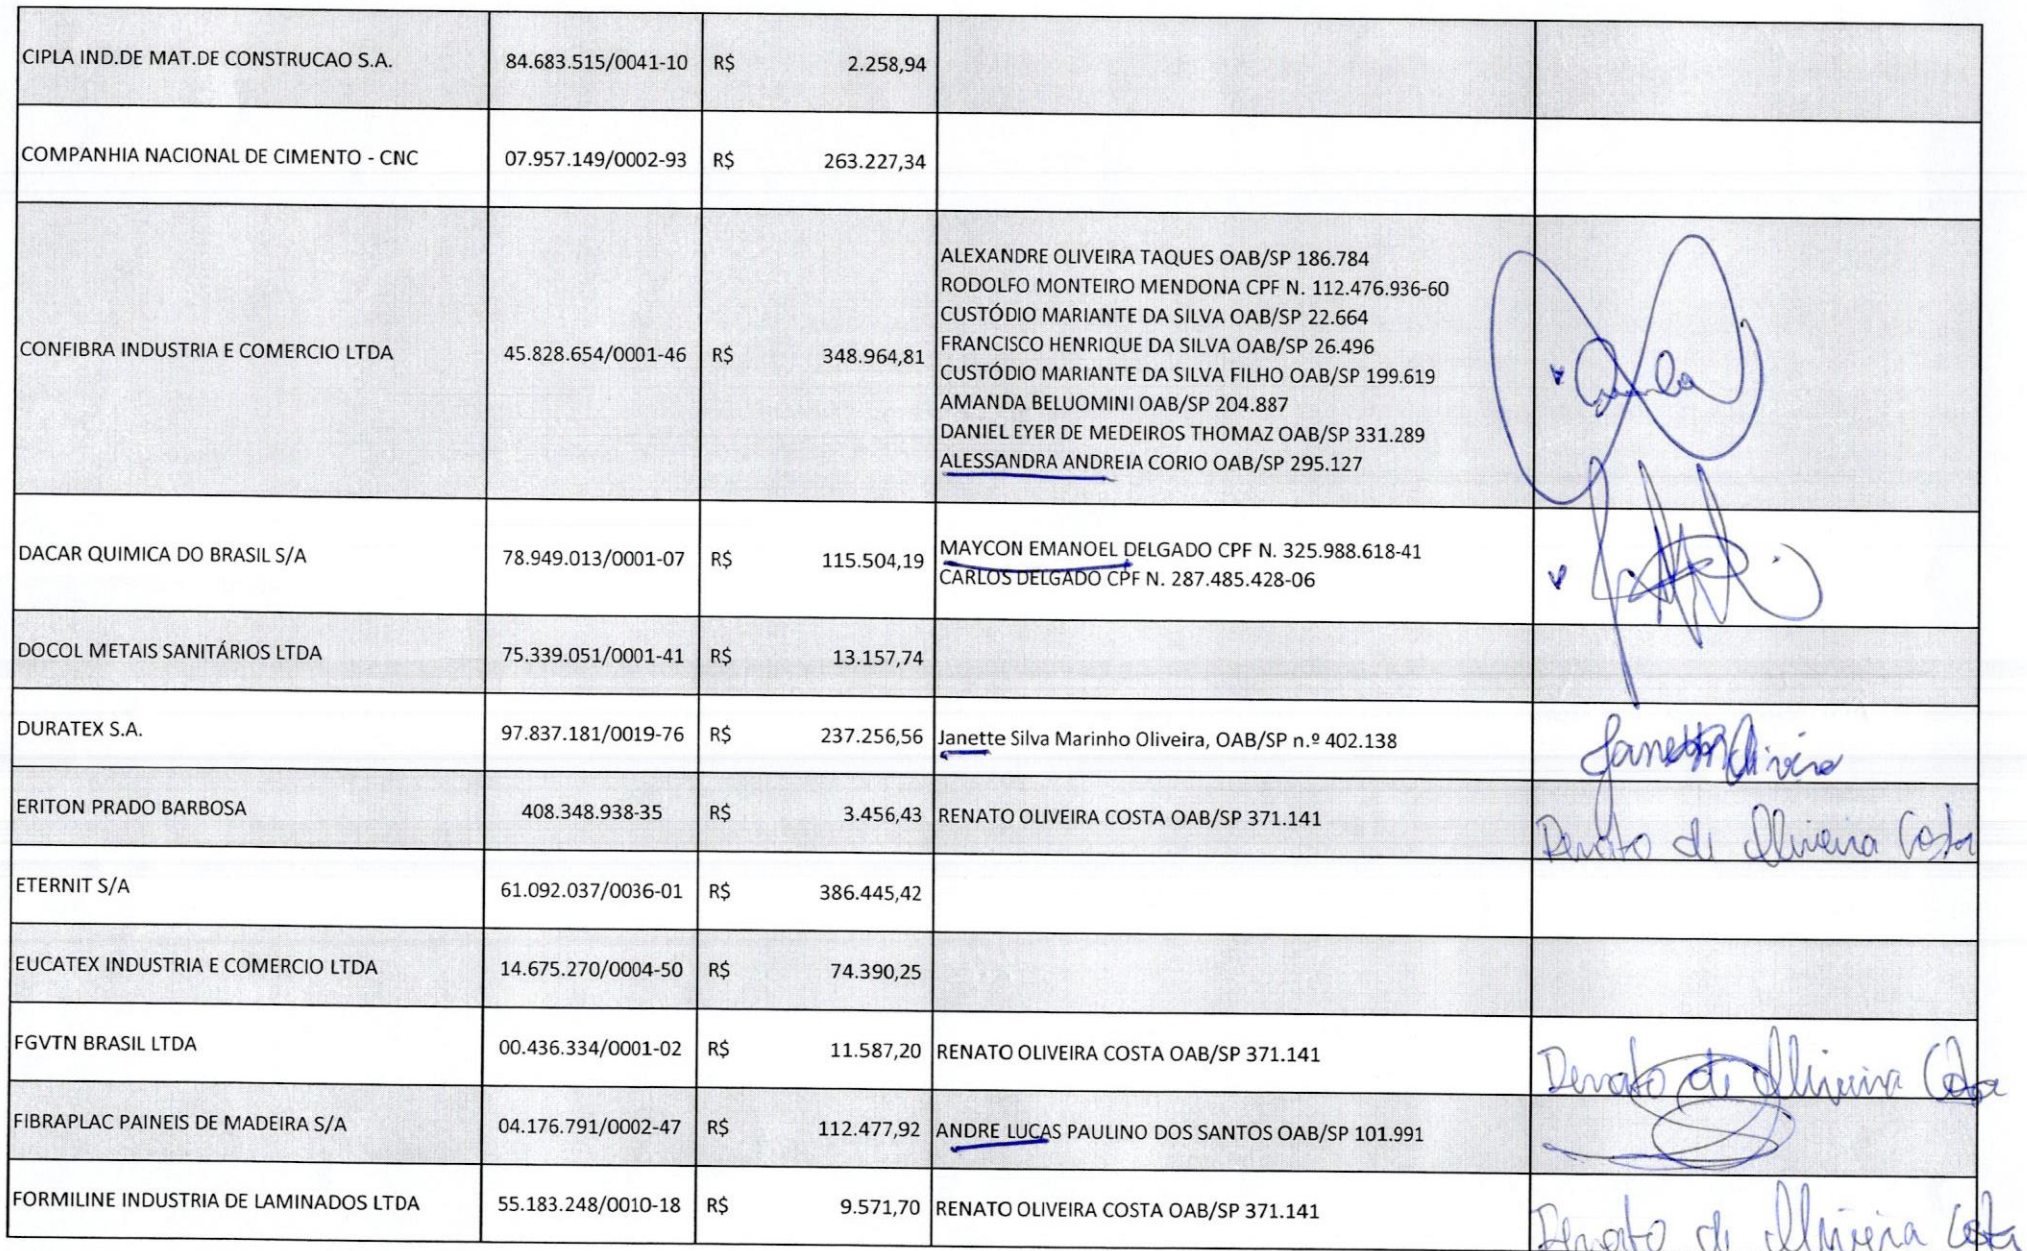 CIPLA IND.DE MAT.DE CONSTRUCAO S.A. 84.683.515/0041-10 R$ 2.258,94
COMPANHIA NACIONAL DE CIMENTO - CNC 07.957.149/0002-93 R$ 263.227,34
ALEXANDRE OLIVEIRA TAQUES OAB/SP 186.784
RODOLFO MONTEIRO MENDONA CPF N. 112.476.936-60
CUSTÓDIO MARIANTE DA SILVA OAB/SP 22.664
FRANCISCO HENRIQUE DA SILVA OAB/SP 26.496
CONFIBRA INDUSTRIA E COMERCIO LTDA 45.828.654/0001-46 R$ 348.964,81
CUSTÓDIO MARIANTE DA SILVA FILHO OAB/SP 199.619
AMANDA BELUOMINI OAB/SP 204.887
DANIEL EYER DE MEDEIROS THOMAZ OAB/SP 331.289
ALESSANDRA ANDREIA CORIO OAB/SP 295.127
DACAR QUIMICA DO BRASIL S/A 78.949.013/0001-07 R$ 115.504,19 MAYCON EMANOEL DELGADO CPF N. 325.988.618-41
CARLOS DELGADO CPF N. 287.485.428-06
DOCOL METAIS SANITÁRIOS LTDA 75.339.051/0001-41 R$ 13.157,74
DURATEX S.A. 97.837.181/0019-76 R$ 237.256,56 Janette Silva Marinho Oliveira, OAB/SP n.º 402.138
ERITON PRADO BARBOSA 408.348.938-35 R$ 3.456,43 RENATO OLIVEIRA COSTA OAB/SP 371.141 Renato de Oliveira Costa
ETERNIT S/A 61.092.037/0036-01 R$ 386.445,42
EUCATEX INDUSTRIA E COMERCIO LTDA 14.675.270/0004-50 R$ 74.390,25
FGVTN BRASIL LTDA 00.436.334/0001-02 R$ 11.587,20 RENATO OLIVEIRA COSTA OAB/SP 371.141 Renato de Oliveira Costa
FIBRAPLAC PAINEIS DE MADEIRA S/A 04.176.791/0002-47 R$ 112.477,92 ANDRE LUCAS PAULINO DOS SANTOS OAB/SP 101.991
FORMILINE INDUSTRIA DE LAMINADOS LTDA 55.183.248/0010-18 R$ 9.571,70 RENATO OLIVEIRA COSTA OAB/SP 371.141 Renato de Oliveira Costa